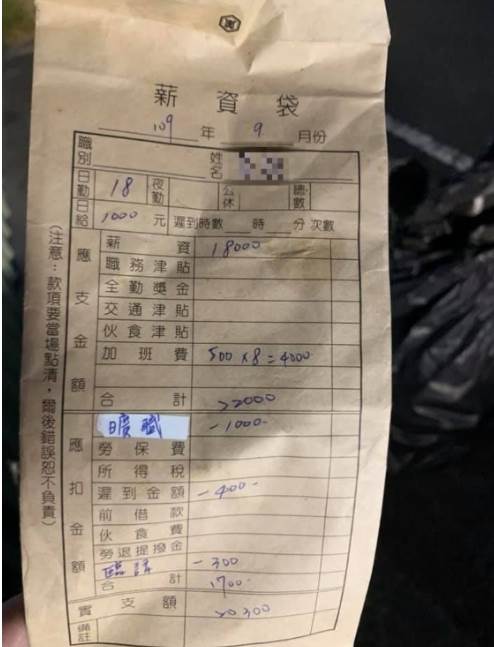 薪資袋
109年9月份
職別 姓名
日勤 18 夜勤 公休 總數
日給 1000元 遲到時數 時 分 次數
應支金額
薪資 18000
職務津貼
全勤獎金
交通津貼
伙食津貼
加班費 500×8=4000
合計 22000
應扣金額
曠職 -1000-
勞保費
所得稅
遲到金額 -400-
前借款
伙食費
勞退提撥金
臨請 -300
合計 1700-
實支額 20300
備註
(注意:款項要當場點清,爾後錯誤恕不負責)